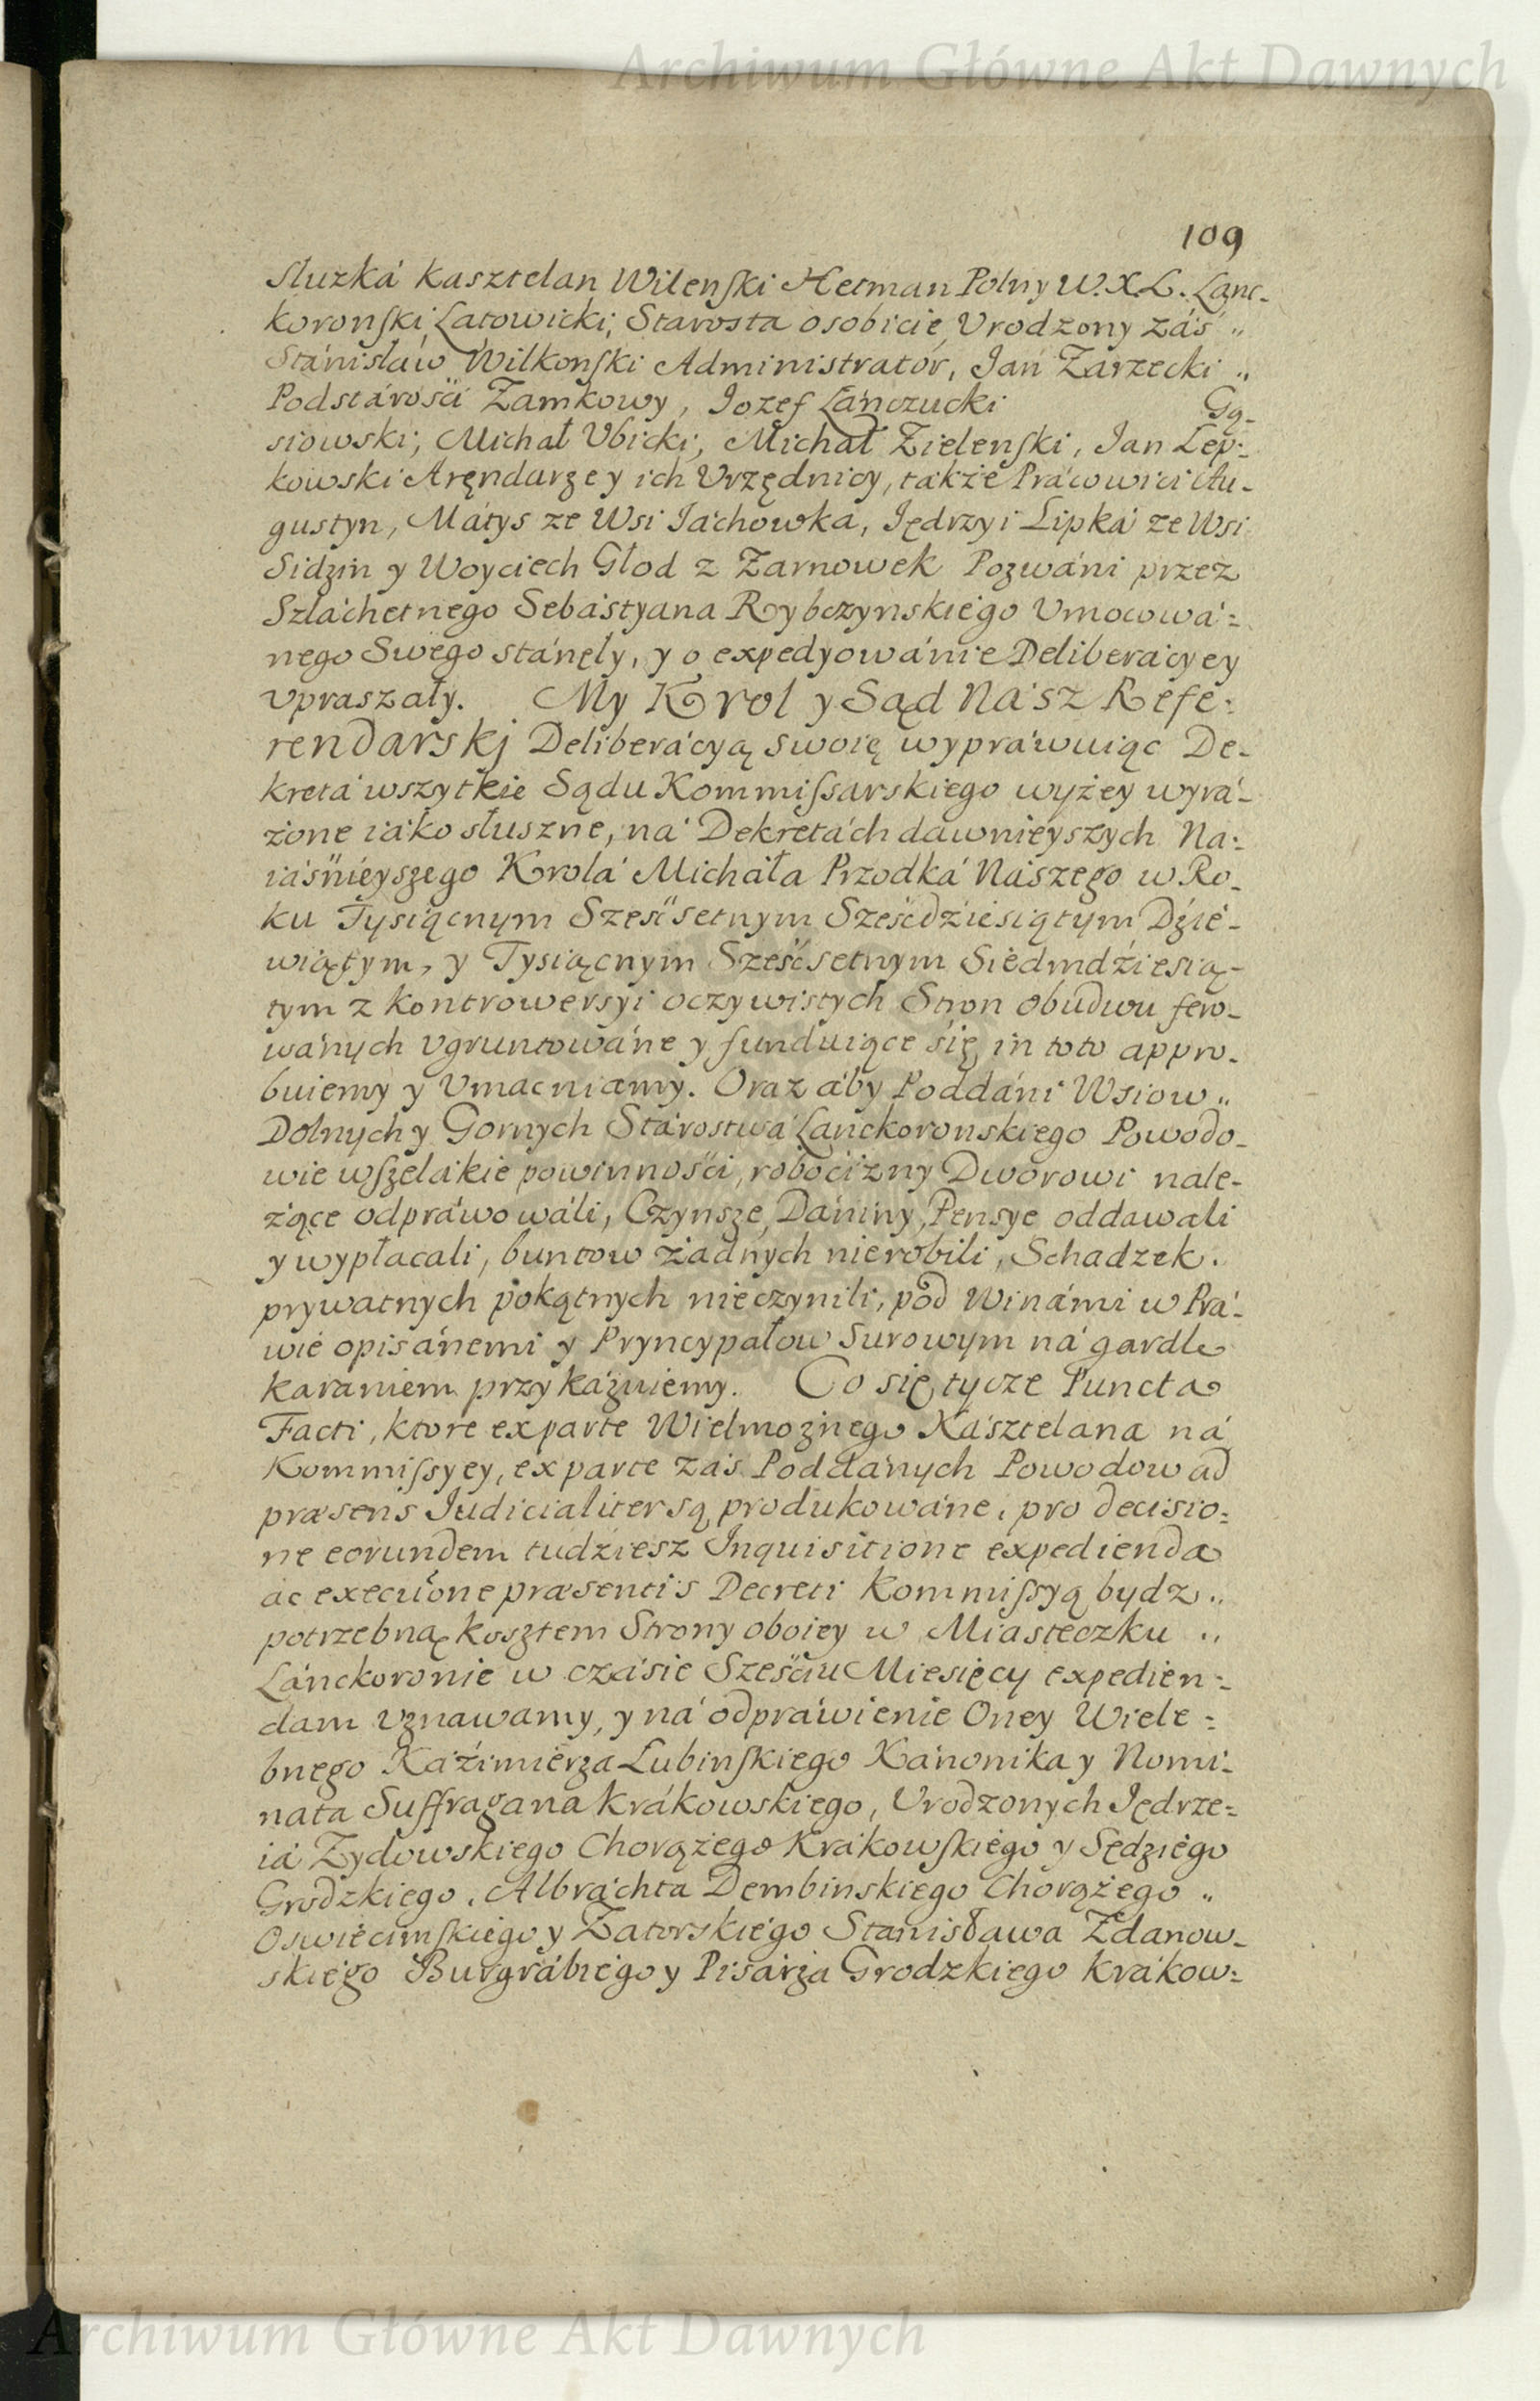 Archiwum Główne Akt Dawnych
109
Sluzká Kasztelan Wilenſki Hetman Polny W.X.L. Lanc-
koronſki Latowicki, Starosta osobicie, Vrodzony záś „
Stánisláw Wilkonſki Administrator, Ian Zarzecki „
Podstárośći Zamkowy, Iozef Láńczucki Gą-
siowski, Michał Vbicki, Michał Zielenſki, Ian Lep:
kowski Aręndarze y ich Vrzędnicy, tákże Prácowici Au-
gustyn, Mátys ze Wsi Iáchowka, Iędrzyi Lipká ze Wsi
Sidzin y Woyciech Głod z Zarnowek Pozwáni przez
Szláchetnego Sebástyana Rybczynskiego Vmocowá:
nego Swego stánęły, y o expedyowánie Deliberácyey
vpraszały. My Krol y Sąd Nász Refe:
rendarskj Deliberácyą swoię wypráwuiąc De-
kretá wszytkie Sądu Kommiſsarskiego wyżey wyrá-
żone iáko słuszne, ná Dekretách dawnieyszych Na:
iáśnieyszego Krolá Michała Przodká Nászego w Ro-
ku Tysiącnym Sześćsetnym Sześćdźiesiątym Dźie-
wiątym, y Tysiącnym Sześćsetnym Siedmdźiesią-
tym z kontrowersyi oczywistych Stron obudwu fero-
wánych vgruntowáne y funduiące się, in toto appro-
buiemy y Vmacniamy. Oraz áby Poddáni Wsiow „
Dolnych y Gornych Stárostwá Lanckoronskiego Powodo-
wie wſzelákie powinnośći, roboćizny Dworowi nale-
żące odpráwowáli, Czynsze, Dániny, Pensye oddawali
y wypłacali, buntow żadnych nierobili, Schadzek.
prywatnych pokątnych nieczynili, pod Winámi w Prá-
wie opisánemi y Pryncypałow surowym ná gardle
karaniem przykázuiemy. Co się tycze Puncta
Facti, ktore ex parte Wielmożnego Kásztelana ná
Kommiſsyey, ex parte záś Poddánych Powodow ad
præsens Iudicialiter są produkowáne, pro decisio:
ne eorundem tudziesz Inquisitione expedienda
ac executione præsentis Decreti Kommiſsyą bydz „
potrzebną kosztem Strony oboiey w Miasteczku „
Lánckoronie w czásie Sześćiu Miesięcy expedien:
dam vznawamy, y ná odpráwienie Oney Wiele:
bnego Káźimierza Lubinſkiego Kánonika y Nomi-
nata Suffragana Krákowskiego, Vrodzonych Iędrze:
iá Zydowskiego Chorążego Krákowſkiego y Sędziego
Grodzkiego, Albráchta Dembinskiego Chorążego „
Oswiecimſkiego y Zatorskiego Stanisława Zdanow-
skiego Burgrábiego y Pisárza Grodzkiego Krákow:
Archiwum Główne Akt Dawnych